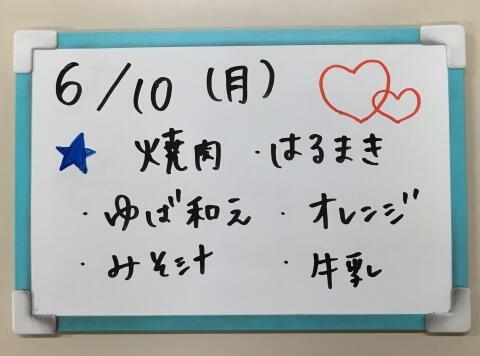 6/10 (月)
★ 焼肉 ・はるまき
・ゆば和え ・オレンジ
・みそ汁 ・牛乳